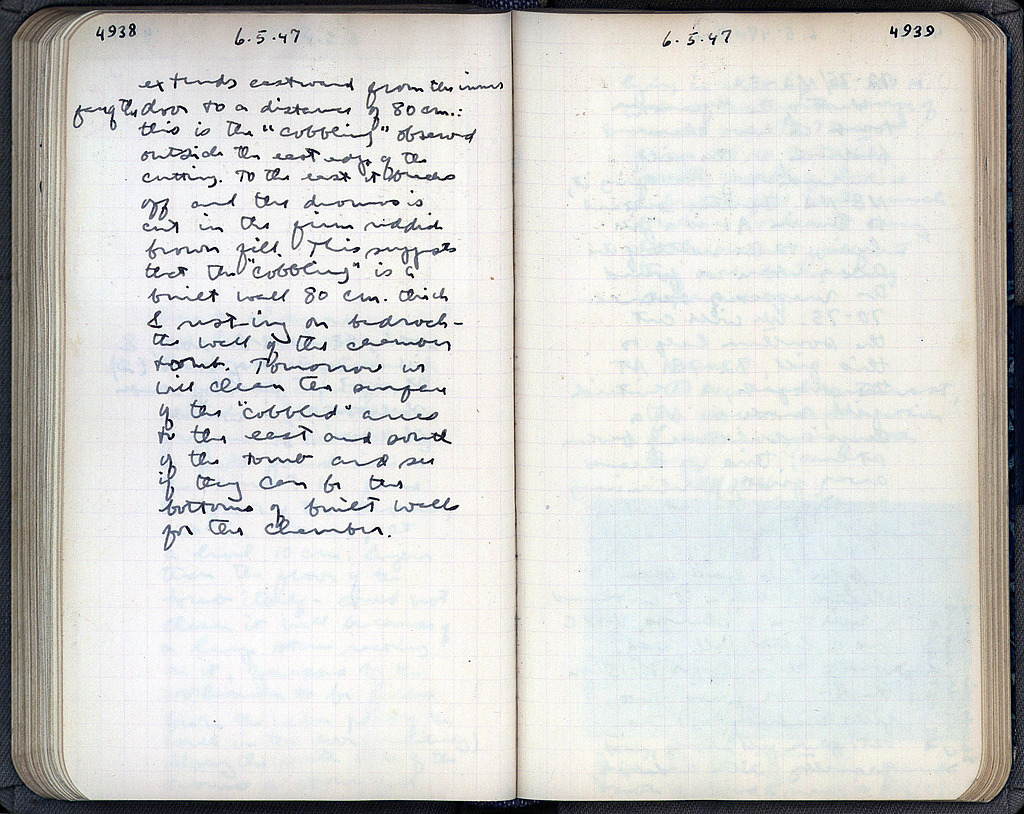 4938
6.5.47
extends eastward from the inner
face of the door to a distance of 80 cm.:
this is the "cobbling" observed
outside the east edge of the
cutting. To the east it breaks
off and the dromos is
cut in the firm reddish
brown fill. This suggests
that the "cobbling" is a
built wall 80 cm. thick
& resting on bedrock –
the wall of the chamber
tomb. Tomorrow we
will clean the surface
of the "cobbled" areas
to the east and south
of the tomb and see
if they can be the
bottoms of built walls
for the chamber.
6.5.47
4939